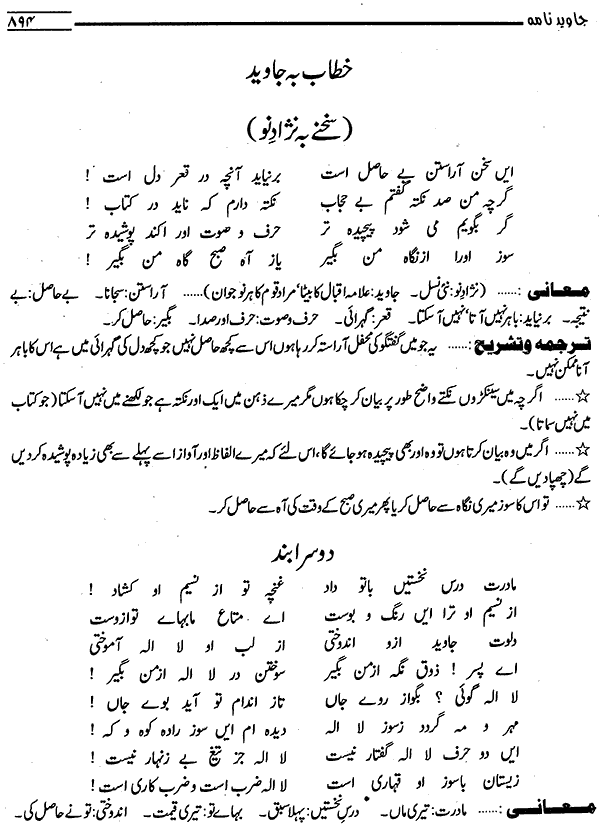 جاوید نامہ ۸۹۴
خطاب بہ جاوید
(سخنے بہ نژادِ نو)
ایں سخن آراستن بے حاصل است برنیاید آنچہ در قعر دل است !
گرچہ من صد نکتہ گفتم بے حجاب نکتہ دارم کہ ناید در کتاب !
گر بگویم می شود پیچیدہ تر حرف و صوت اور اکند پوشیدہ تر
سوز اورا ازنگاہ من بگیر یاز آہ صبح گاہ من بگیر !
معانی :...... (نژادِ نو: نئی نسل۔ جاوید: علامہ اقبال کا بیٹا‘ مراد قوم کا ہر نوجوان)...... آراستن: سجانا۔ بے حاصل: بے
نتیجہ۔ برنیاید: باہر نہیں آتا‘ نہیں آ سکتا۔ قعر: گہرائی۔ حرف و صوت: حرف اور صدا۔ بگیر: حاصل کر۔
ترجمہ وتشریح :...... یہ جو میں گفتگو کی محفل آراستہ کر رہا ہوں اس سے کچھ حاصل نہیں جو کچھ دل کی گہرائی میں ہے اس کا باہر
آنا ممکن نہیں۔
☆...... اگرچہ میں سینکڑوں نکتے واضح طور پر بیان کر چکا ہوں مگر میرے ذہن میں ایک اور نکتہ ہے جو لکھنے میں نہیں آ سکتا (جو کتاب
میں نہیں سماتا)۔
☆...... اگر میں وہ بیان کرتا ہوں تو وہ اور بھی پیچیدہ ہو جائے گا‘ اس لئے کہ میرے الفاظ اور آواز اسے پہلے سے بھی زیادہ پوشیدہ کر دیں
گے (چھپا دیں گے)۔
☆...... تو اس کا سوز میری نگاہ سے حاصل کر یا پھر میری صبح کے وقت کی آہ سے حاصل کر۔
دوسرا بند
مادرت درس نخستیں باتو داد غنچہ تو از نسیم او کشاد !
از نسیم او ترا ایں رنگ و بوست اے متاع مابہائے توازوست
دلوت جاوید ازو اندوختی از لب او لا الہ آموختی
اے پسر ! ذوق نگہ ازمن بگیر سوختن در لا الہ ازمن بگیر !
لا الہ گوئی ؟ بگواز روے جاں تاز اندام تو آید بوے جاں !
مہر و مہ گردد زسوز لا الہ دیدہ ام ایں سوز رادہ کوہ و کہ !
ایں دو حرف لا الہ گفتار نیست لا الہ جز تیغ بے زنہار نیست !
زیستان باسوز او قہاری است لا الہ ضرب است و ضرب کاری است !
معانی :...... مادرت: تیری ماں۔ درس نخستیں: پہلا سبق۔ بہائے تو: تیری قیمت۔ اندوختی: تو نے حاصل کی۔